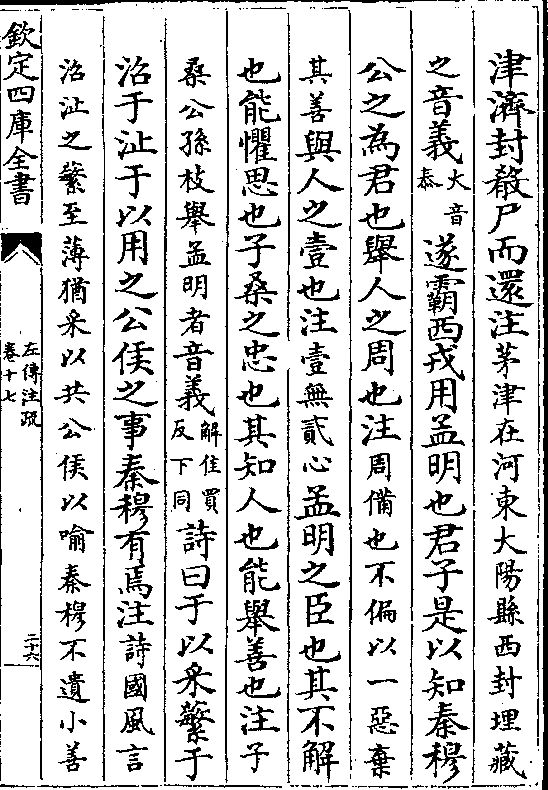 津濟封殽尸而還注茅津在河東大陽縣西封埋藏
之音義大音泰遂霸西戎用孟明也君子是以知秦穆
公之為君也舉人之周也注周備也不偏以一惡棄
其善與人之壹也注壹無貳心孟明之臣也其不解
也能懼思也子桑之忠也其知人也能舉善也注子
桑公孫枝舉孟明者音義解佳買反下同詩曰于以采蘩于
沼于沚于以用之公侯之事秦穆有焉注詩國風言
沼沚之蘩至薄猶采以共公侯以喻秦穆不遺小善
欽定四庫全書
左傳注疏
卷十七
二十六